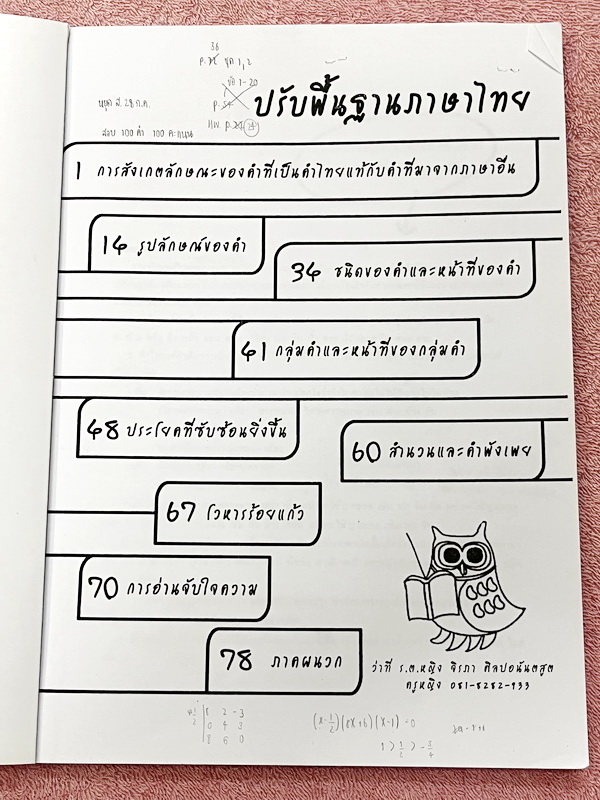 36
ชุด 1, 2
ชุด 1-20
ปรับพื้นฐานภาษาไทย
สอบ 100 คำ 100 คะแนน
HW. p.
1 การสังเกตลักษณะของคำที่เป็นคำไทยแท้กับคำที่มาจากภาษาอื่น
14 รูปลักษณ์ของคำ
34 ชนิดของคำและหน้าที่ของคำ
41 กลุ่มคำและหน้าที่ของกลุ่มคำ
48 ประโยคที่ซับซ้อนยิ่งขึ้น
60 สำนวนและคำพังเพย
67 โวหารร้อยแก้ว
70 การอ่านจับใจความ
78 ภาคผนวก
ว่าที่ ร.ต.หญิง จิรภา ศิลปอนันตสูต
ครูหญิง 081-8282-933
8 2 -3
0 4 3
8 6 0